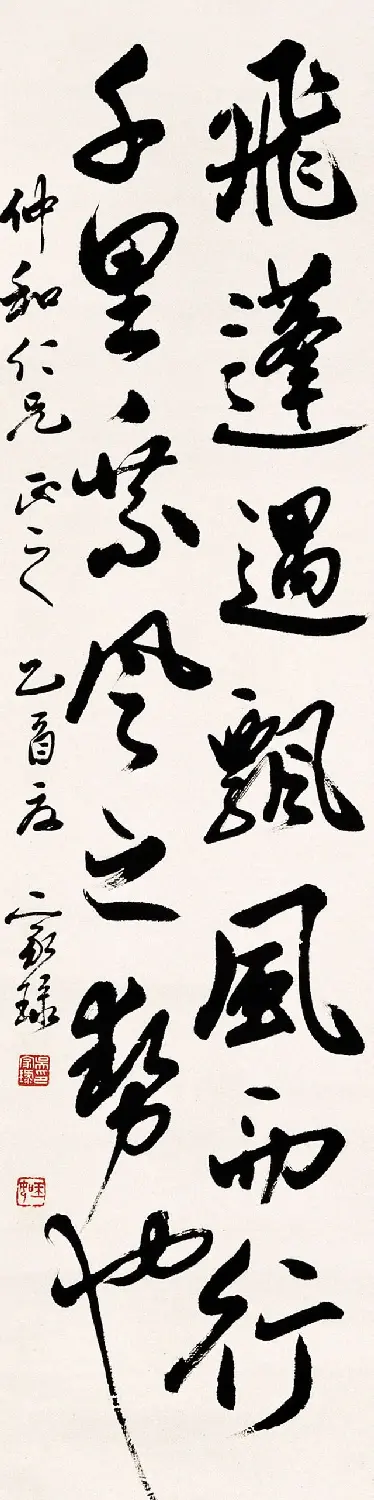 飛蓬遇飄風而行
千里乘風之勢也
仲和仁兄正之 乙酉 家琭